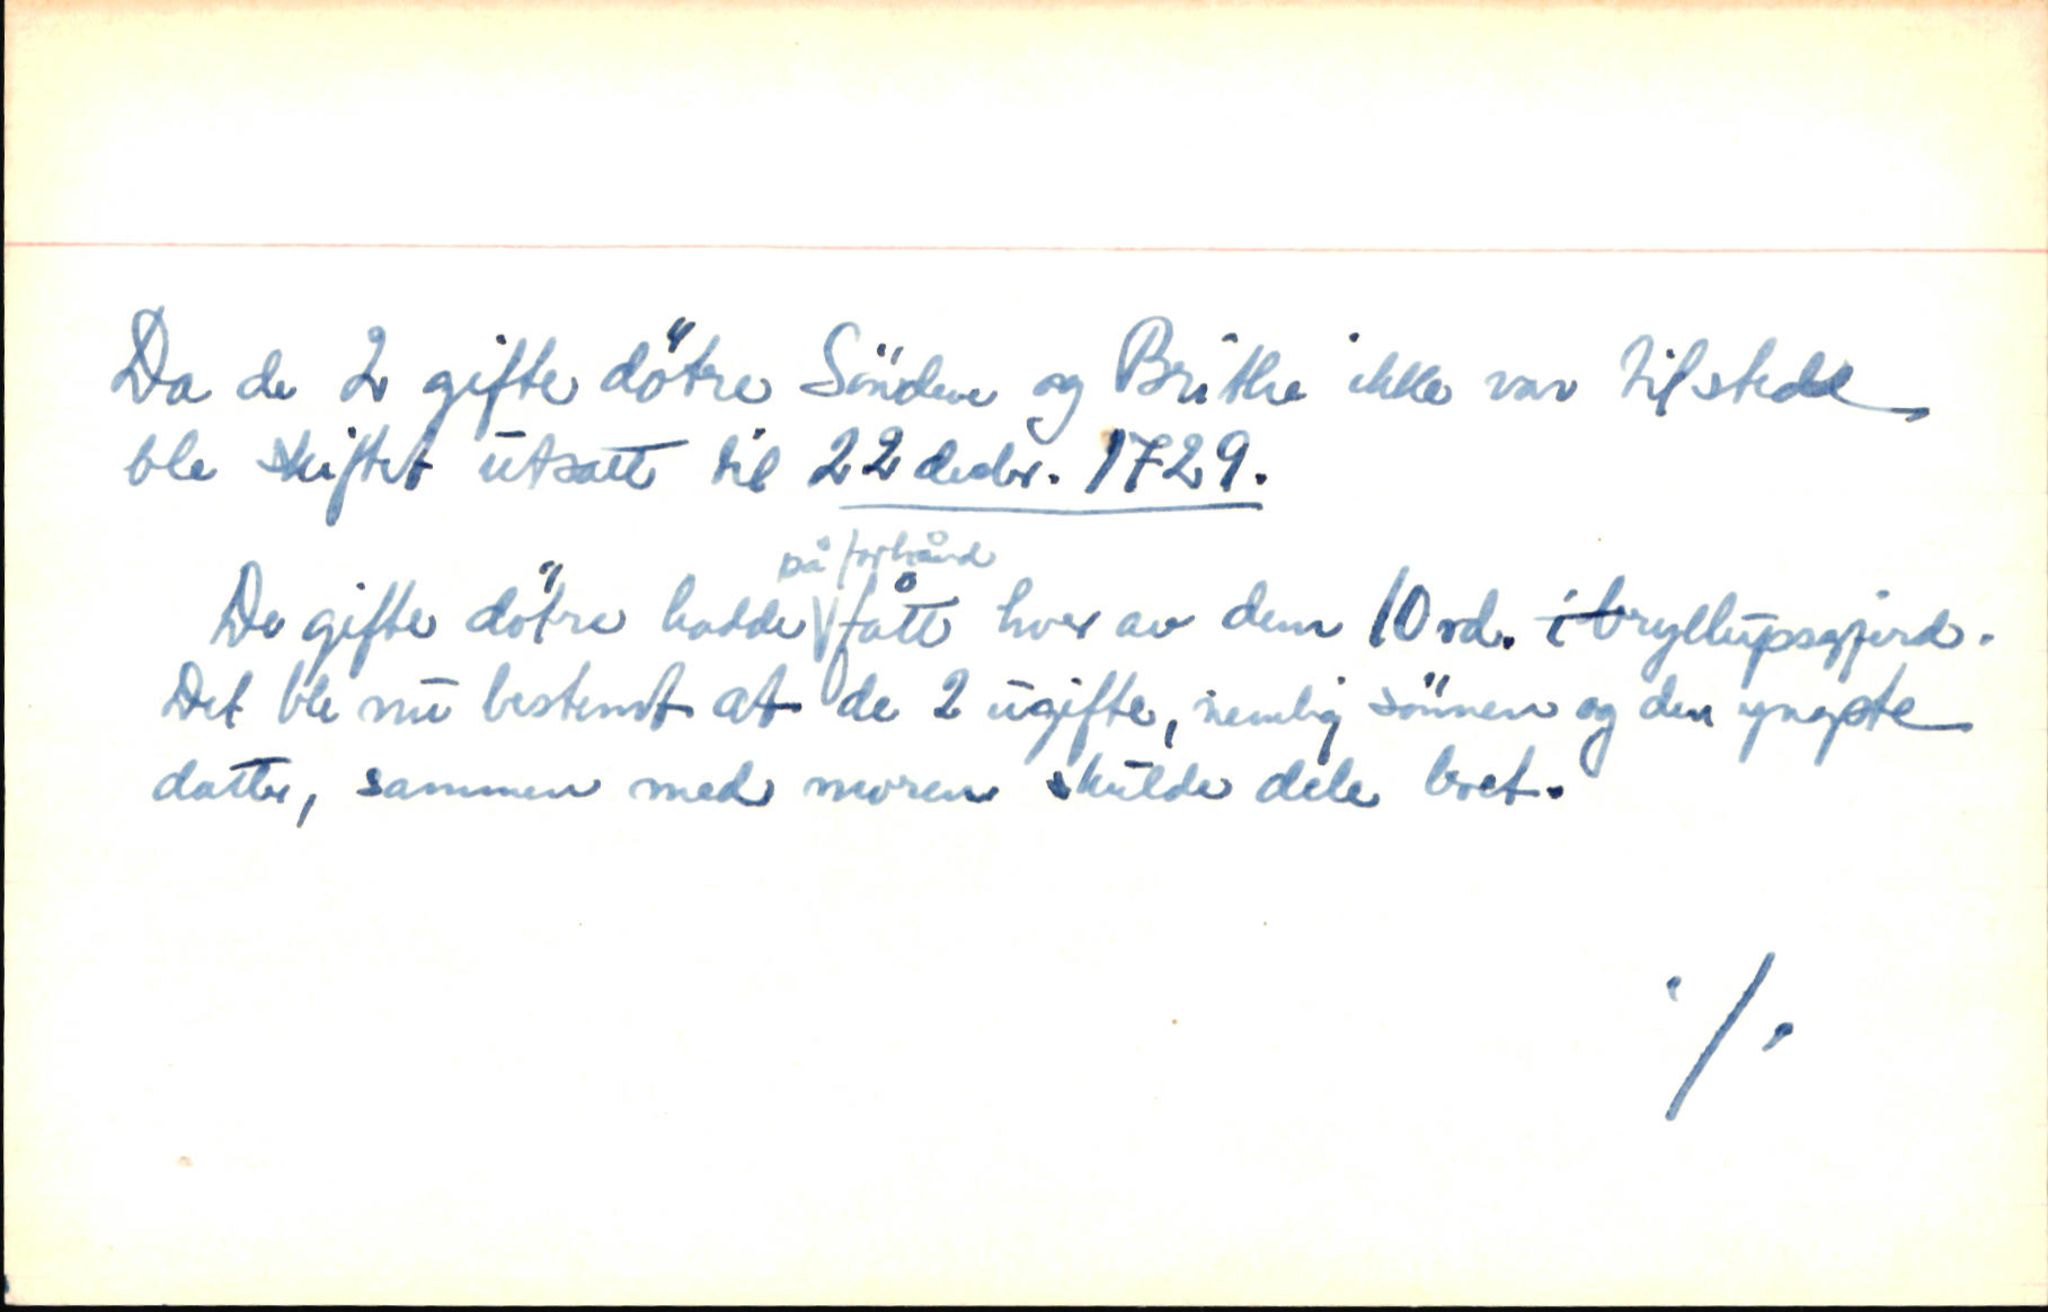 Da de 2 gifte dötre Söndve og Brithe ikke var tilstede
ble skiftet utsatt til 22 decbr. 1729.
på forhånd
De gifte dötre hadde fått hver av dem 10 rd. i bryllupsgjerd.
Det ble nu bestemt at de 2 ugifte, nemlig sönnen og den yngste
datter, sammen med moren skulde dele boet.
./.